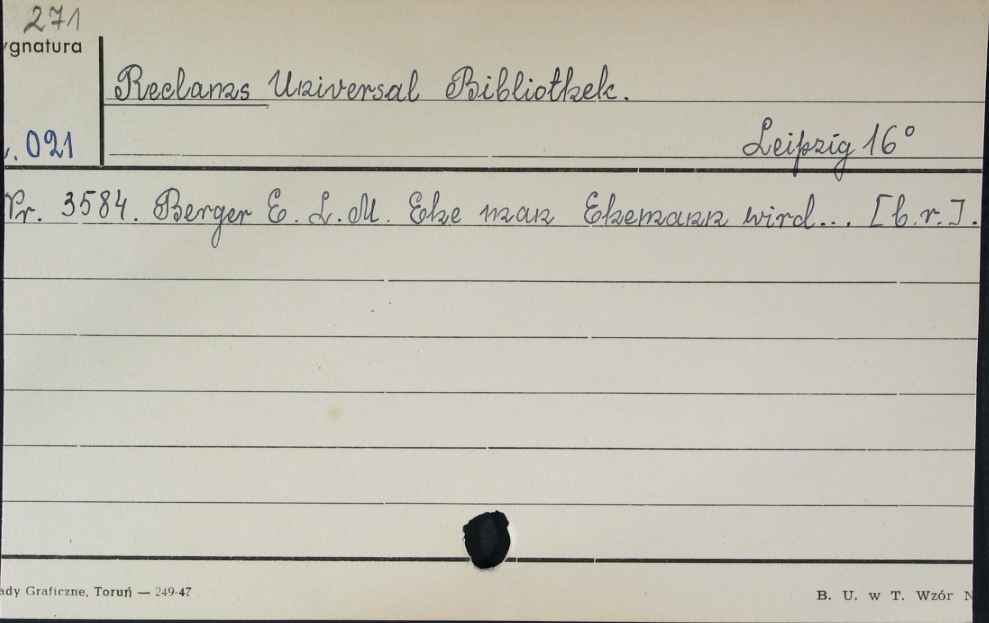 271
ygnatura
Reclams Universal Bibliothek.
. 021
Leipzig 16°
Nr. 3584. Berger E. L. M. Ehe man Ehemann wird... [b.r.].
ady Graficzne, Toruń — 249-47
B. U. w T. Wzór N